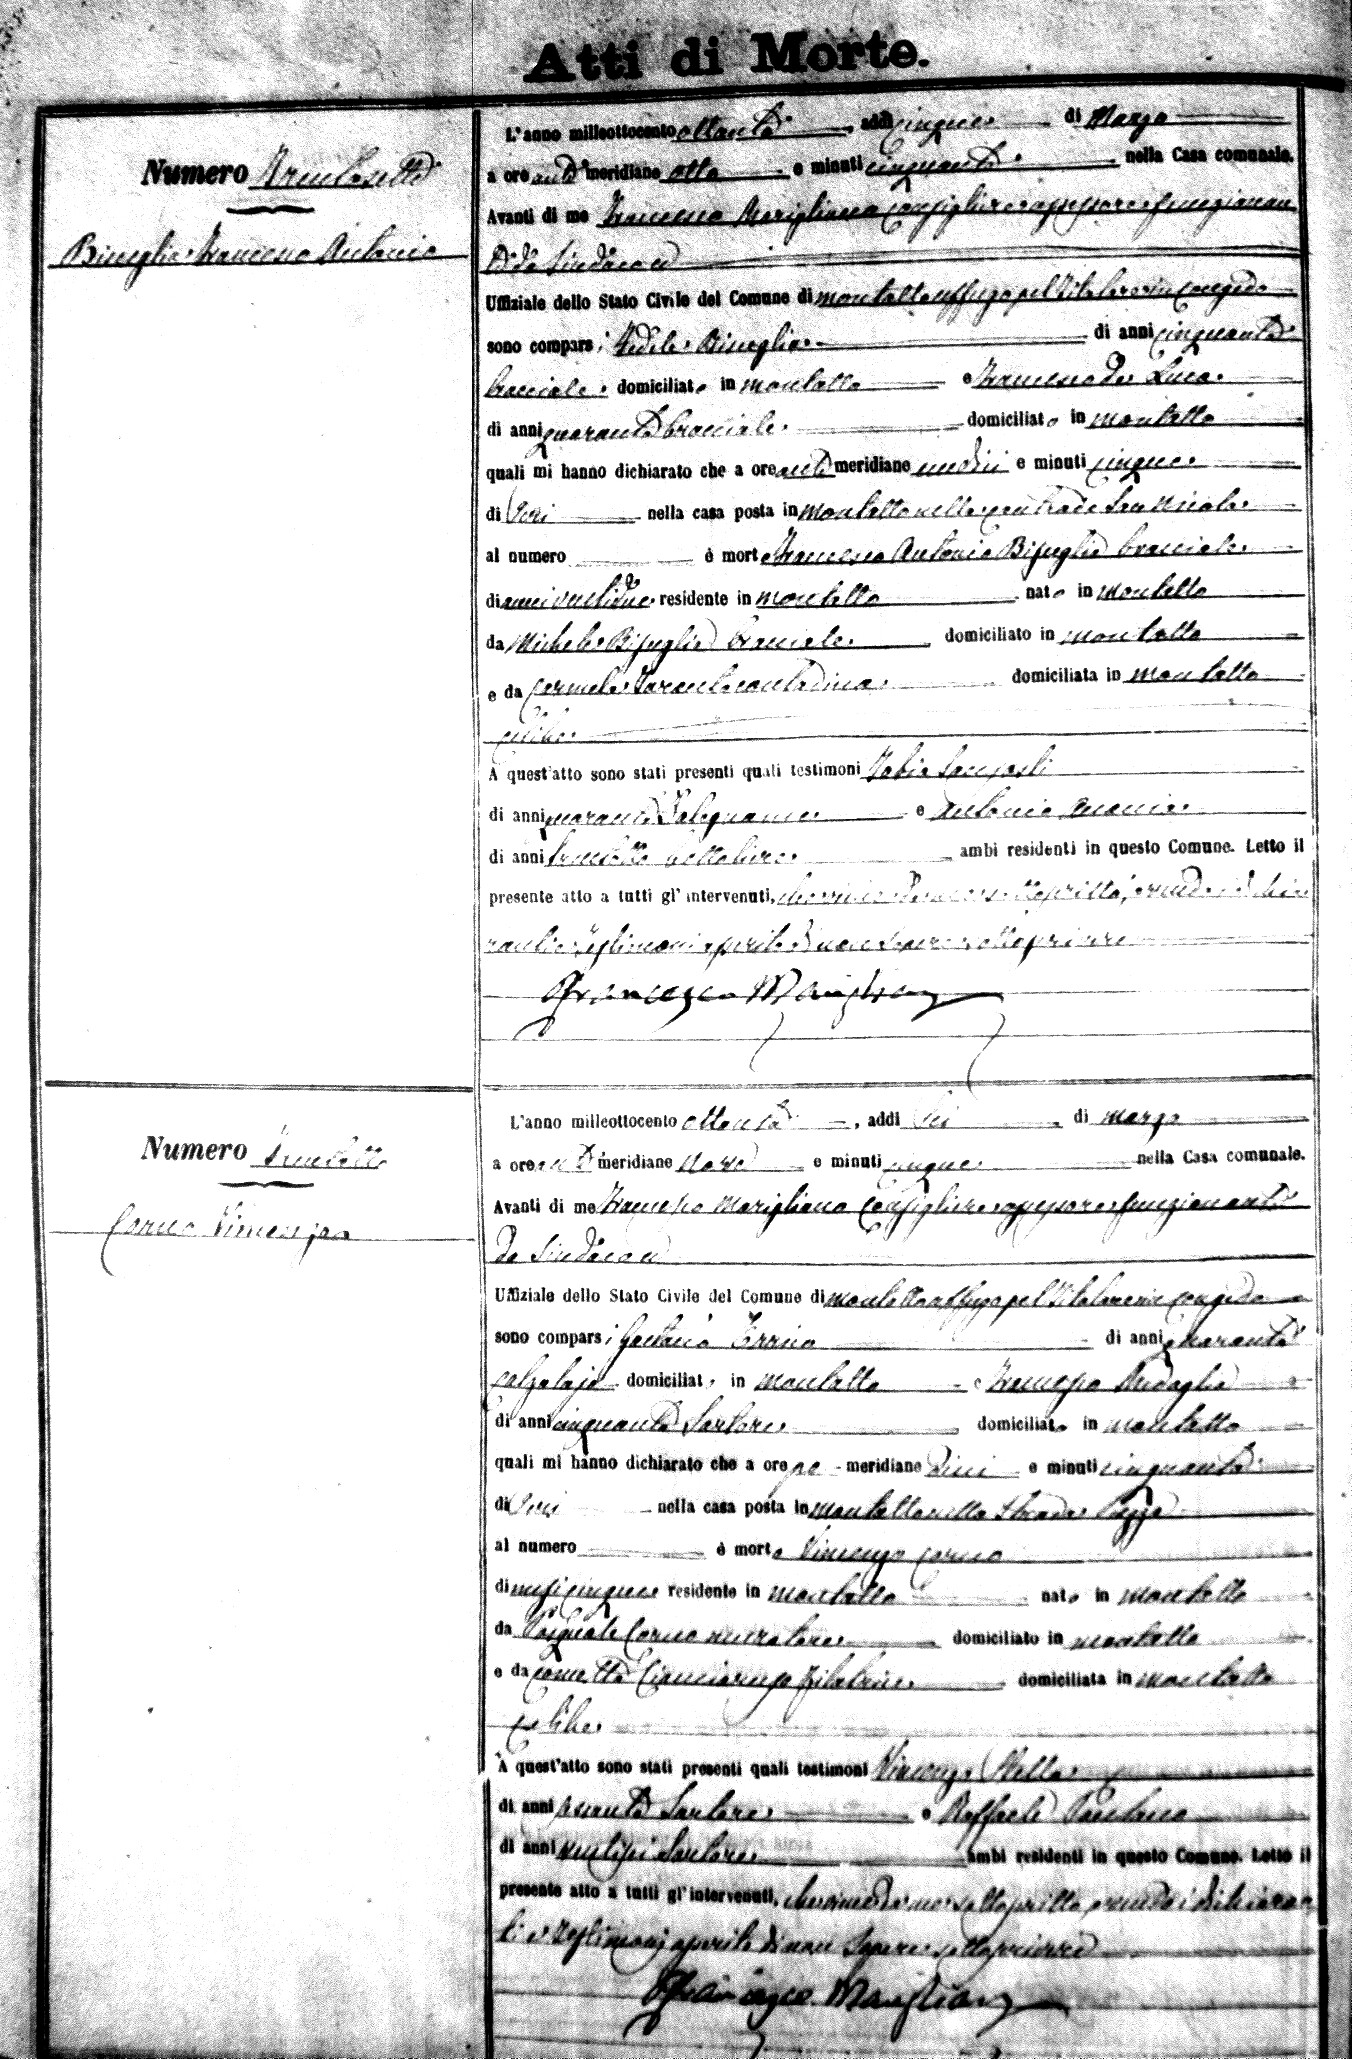 Atti di Morte.
Numero Trentasette
Biseglia Francesco Antonio
L'anno milleottocento ottanta, addì cinque di Marzo
a ore anti meridiane otto e minuti cinquanta nella Casa comunale.
Avanti di me Francesco Marigliano Consigliere assessore funzionan
te da Sindaco
Uffiziale dello Stato Civile del Comune di Montalto Uffugo pel titolare in congedo
sono comparsi Fedele Biseglia di anni cinquanta
bracciale domiciliato in Montalto e Francesco De Luca
di anni quaranta bracciale domiciliato in Montalto
quali mi hanno dichiarato che a ore anti meridiane undici e minuti cinque
di ieri nella casa posta in Montalto nella contrada San Nicola
al numero è morto Francesco Antonio Biseglia bracciale
di anni ventidue residente in Montalto nato in Montalto
da Michele Biseglia bracciale domiciliato in Montalto
e da Carmela contadina domiciliata in Montalto
celibe
A quest'atto sono stati presenti quali testimoni Fabio
di anni quaranta falegname e Antonio
di anni trentotto ambi residenti in questo Comune. Letto il
presente atto a tutti gl'intervenuti, che viene da me sottoscritto, avendo i dichia
ranti e testimoni asserito di non sapere sottoscrivere
Francesco Marigliano
Numero Trentotto
Corno Vincenzo
L'anno milleottocento ottanta, addì sei di Marzo
a ore anti meridiane nove e minuti cinque nella Casa comunale.
Avanti di me Francesco Marigliano Consigliere assessore funzionante
da Sindaco
Uffiziale dello Stato Civile del Comune di Montalto Uffugo pel titolare in congedo
sono comparsi Gaetano di anni quaranta
calzolajo domiciliato in Montalto e Francesco
di anni cinquanta sartore domiciliato in Montalto
quali mi hanno dichiarato che a ore po meridiane dieci e minuti cinquanta
di ieri nella casa posta in Montalto nella strada
al numero è morto Vincenzo Corno
di mesi cinque residente in Montalto nato in Montalto
da Pasquale Corno muratore domiciliato in Montalto
e da Concetta filatrice domiciliata in Montalto
celibe
A quest'atto sono stati presenti quali testimoni Vincenzo Stella
di anni sartore e Raffaele
di anni ventisei sartore ambi residenti in questo Comune. Letto il
presente atto a tutti gl'intervenuti, che viene da me sottoscritto avendo i dichiaran
ti e testimoni asserito di non sapere sottoscrivere
Francesco Marigliano